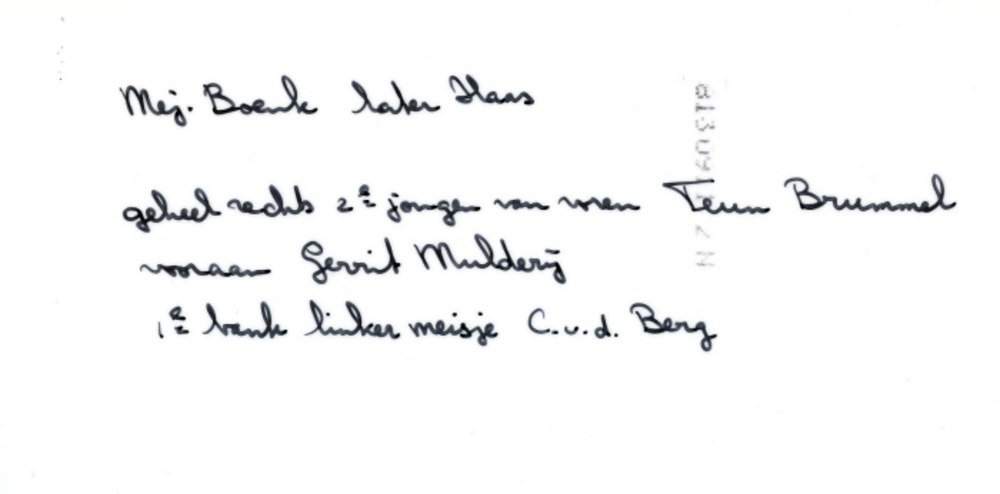 Mej. Boenk later Haas
geheel rechts 2e jongen van voren Teun Brummel
vooraan Gerrit Mulderij
1e bank linker meisje C.v.d. Berg